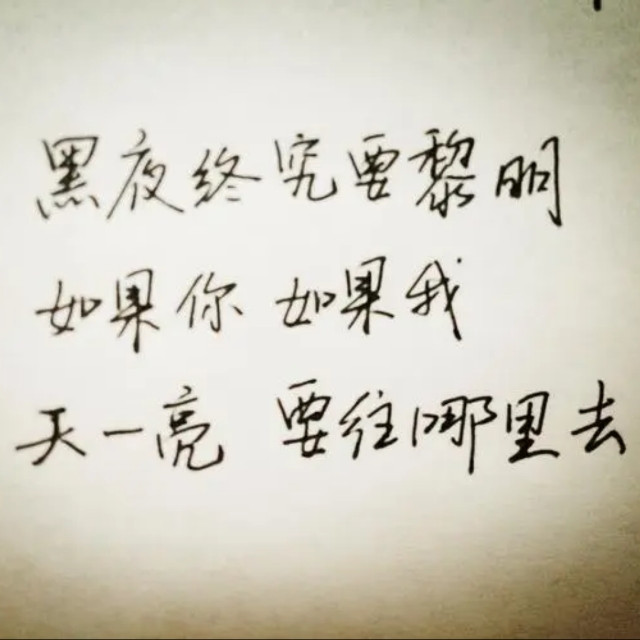 黑夜终究要黎明
如果你 如果我
天一亮 要往哪里去